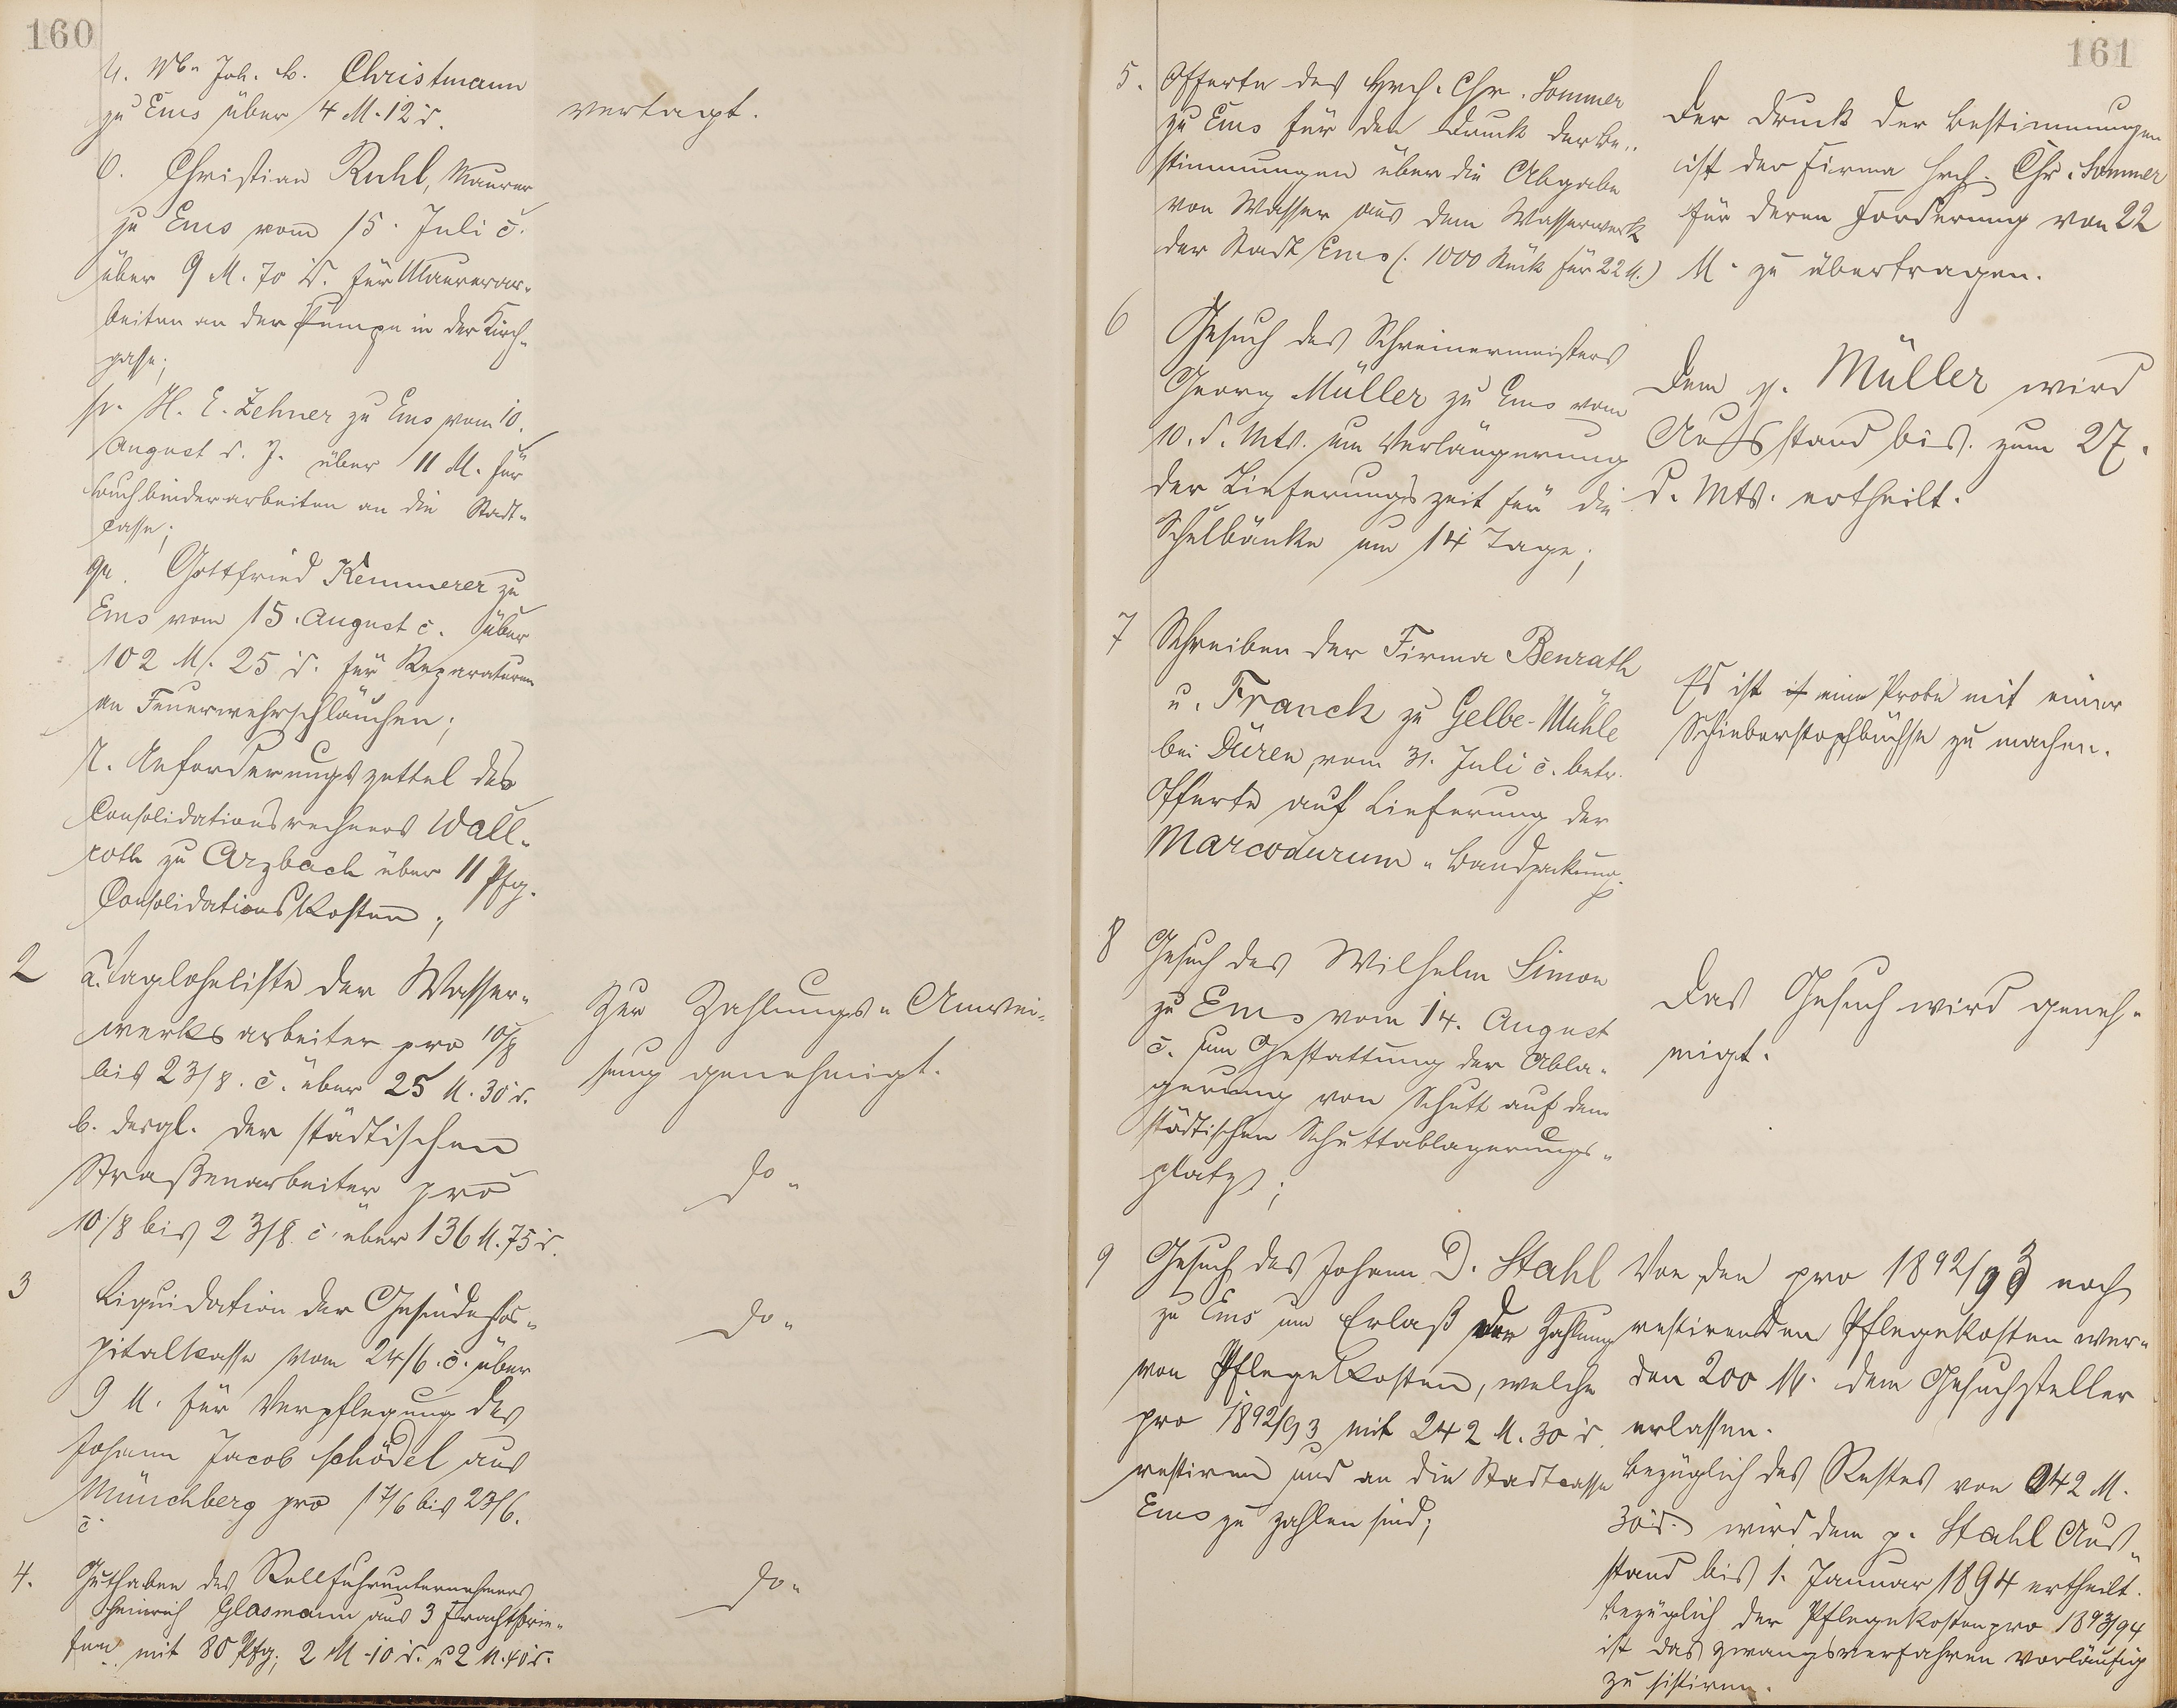 160
n. Wb. Joh. B. Christmann
zu Ems über 4 M. 12 d.
vertagt.
o. Christian Ruhl, Maurer
zu Ems vom 15. Juli c.
über 9 M. 70 d. für Maurerar-
beiten an der Pumpe in der Kirch-
gasse;
p. H. E. Zehner zu Ems vom 10.
August d. J. über 11 M. für
Buchbinderarbeiten an die Stadt-
casse;
q. Gottfried Kemmerer zu
Ems vom 15. August c. über
102 M. 25 d. für Reparaturen
an Feuerwehrschläuchen;
r. Anforderungszettel des
Consolidationsrechners Wall-
roth zu Arzbach über 11 Pfg.
Consolidationskosten;
2 a. Taglohnliste der Wasser-
werksarbeiter pro 10/8
bis 23/8. c. über 25 M. 30 d.
Zur Zahlungs-Anwei-
sung genehmigt.
b. desgl. der städtischen
Straßenarbeiter pro
10/8 bis 23/8 c. über 136 M. 75 d.
do-
3 Liquidation der Gesindehos-
pitalkasse vom 24/6. c. über
9 M. für Verpflegung des
Johann Jacob Schödel aus
Münchberg pro 17/6 bis 23/6.
c.
do-
4. Guthaben des Rollfuhrunternehmers
Heinrich Glasmann aus 3 Frachtbrie-
fen mit 80 Pfg; 2 M. 10 d. u 2 M. 40 d.
do-
161
5. Offerte des Hrch. Chr. Sommer
zu Ems für den Druck der Be-
stimmungen über die Abgabe
von Wasser aus dem Wasserwerk
der Stadt Ems (: 1000 Stück für 22 M.)
Der Druck der Bestimmungen
ist der Firma Hrch. Chr. Sommer
für deren Forderung von 22
M. zu übertragen.
6 Gesuch des Schreinermeisters
Georg Müller zu Ems vom
10. d. Mts. um Verlängerung
der Lieferungszeit für die
Schulbänke um 14 Tage;
Dem p. Müller wird
Ausstand bis zum 27.
d. Mts. ertheilt.
7 Schreiben der Firma Benrath
u. Franck zu Gelbe-Mühle
bei Düren vom 31. Juli c. betr.
Offerte auf Lieferung der
Marcodurum-Bandpackung.
Es ist ist eine Probe mit einer
Schieberstopfbüchse zu machen.
8 Gesuch des Wilhelm Simon
zu Ems vom 14. August
c. um Gestattung der Abla-
gerung von Schutt auf dem
städtischen Schuttablagerungs-
platz;
Das Gesuch wird geneh-
migt.
9 Gesuch des Johann D. Stahl
zu Ems um Erlaß der Zahlung
von Pflegekosten, welche
pro 1892/93 mit 242 M. 30 d
restiren und an die Stadtcasse
Ems zu zahlen sind;
Von den pro 1892/93 noch
restirenden Pflegekosten wer-
den 200 M. dem Gesuchsteller
erlassen.
Bezüglich des Restes von 42 M.
30 d. wird dem p. Stahl Aus-
stand bis 1. Januar 1894 ertheilt.
Bezüglich der Pflegekosten pro 1893/94
ist das Zwangsverfahren vorläufig
zu sistiren.